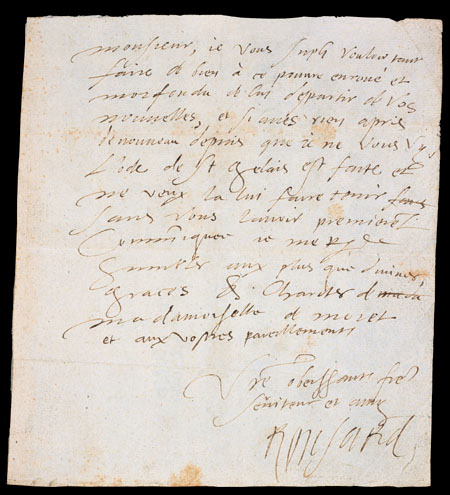 monsieur, ie vous supli vouloir tant
faire de bien à ce pauvre enroué et
morfondu de lui departir de vos
nouvelles, et si avés rien apris
de nouveau depuis que ie ne vous vis
L'ode de St Gelais est faite et
ne veux la lui faire tenir
sans vous l'avoir premieremt
Communiquee ie me
humbles aux plus que divines
graces & Charites de
madamoiselle de moret
et aux vostres pareillement
Vre obeissant
serviteur et amy
Ronsard